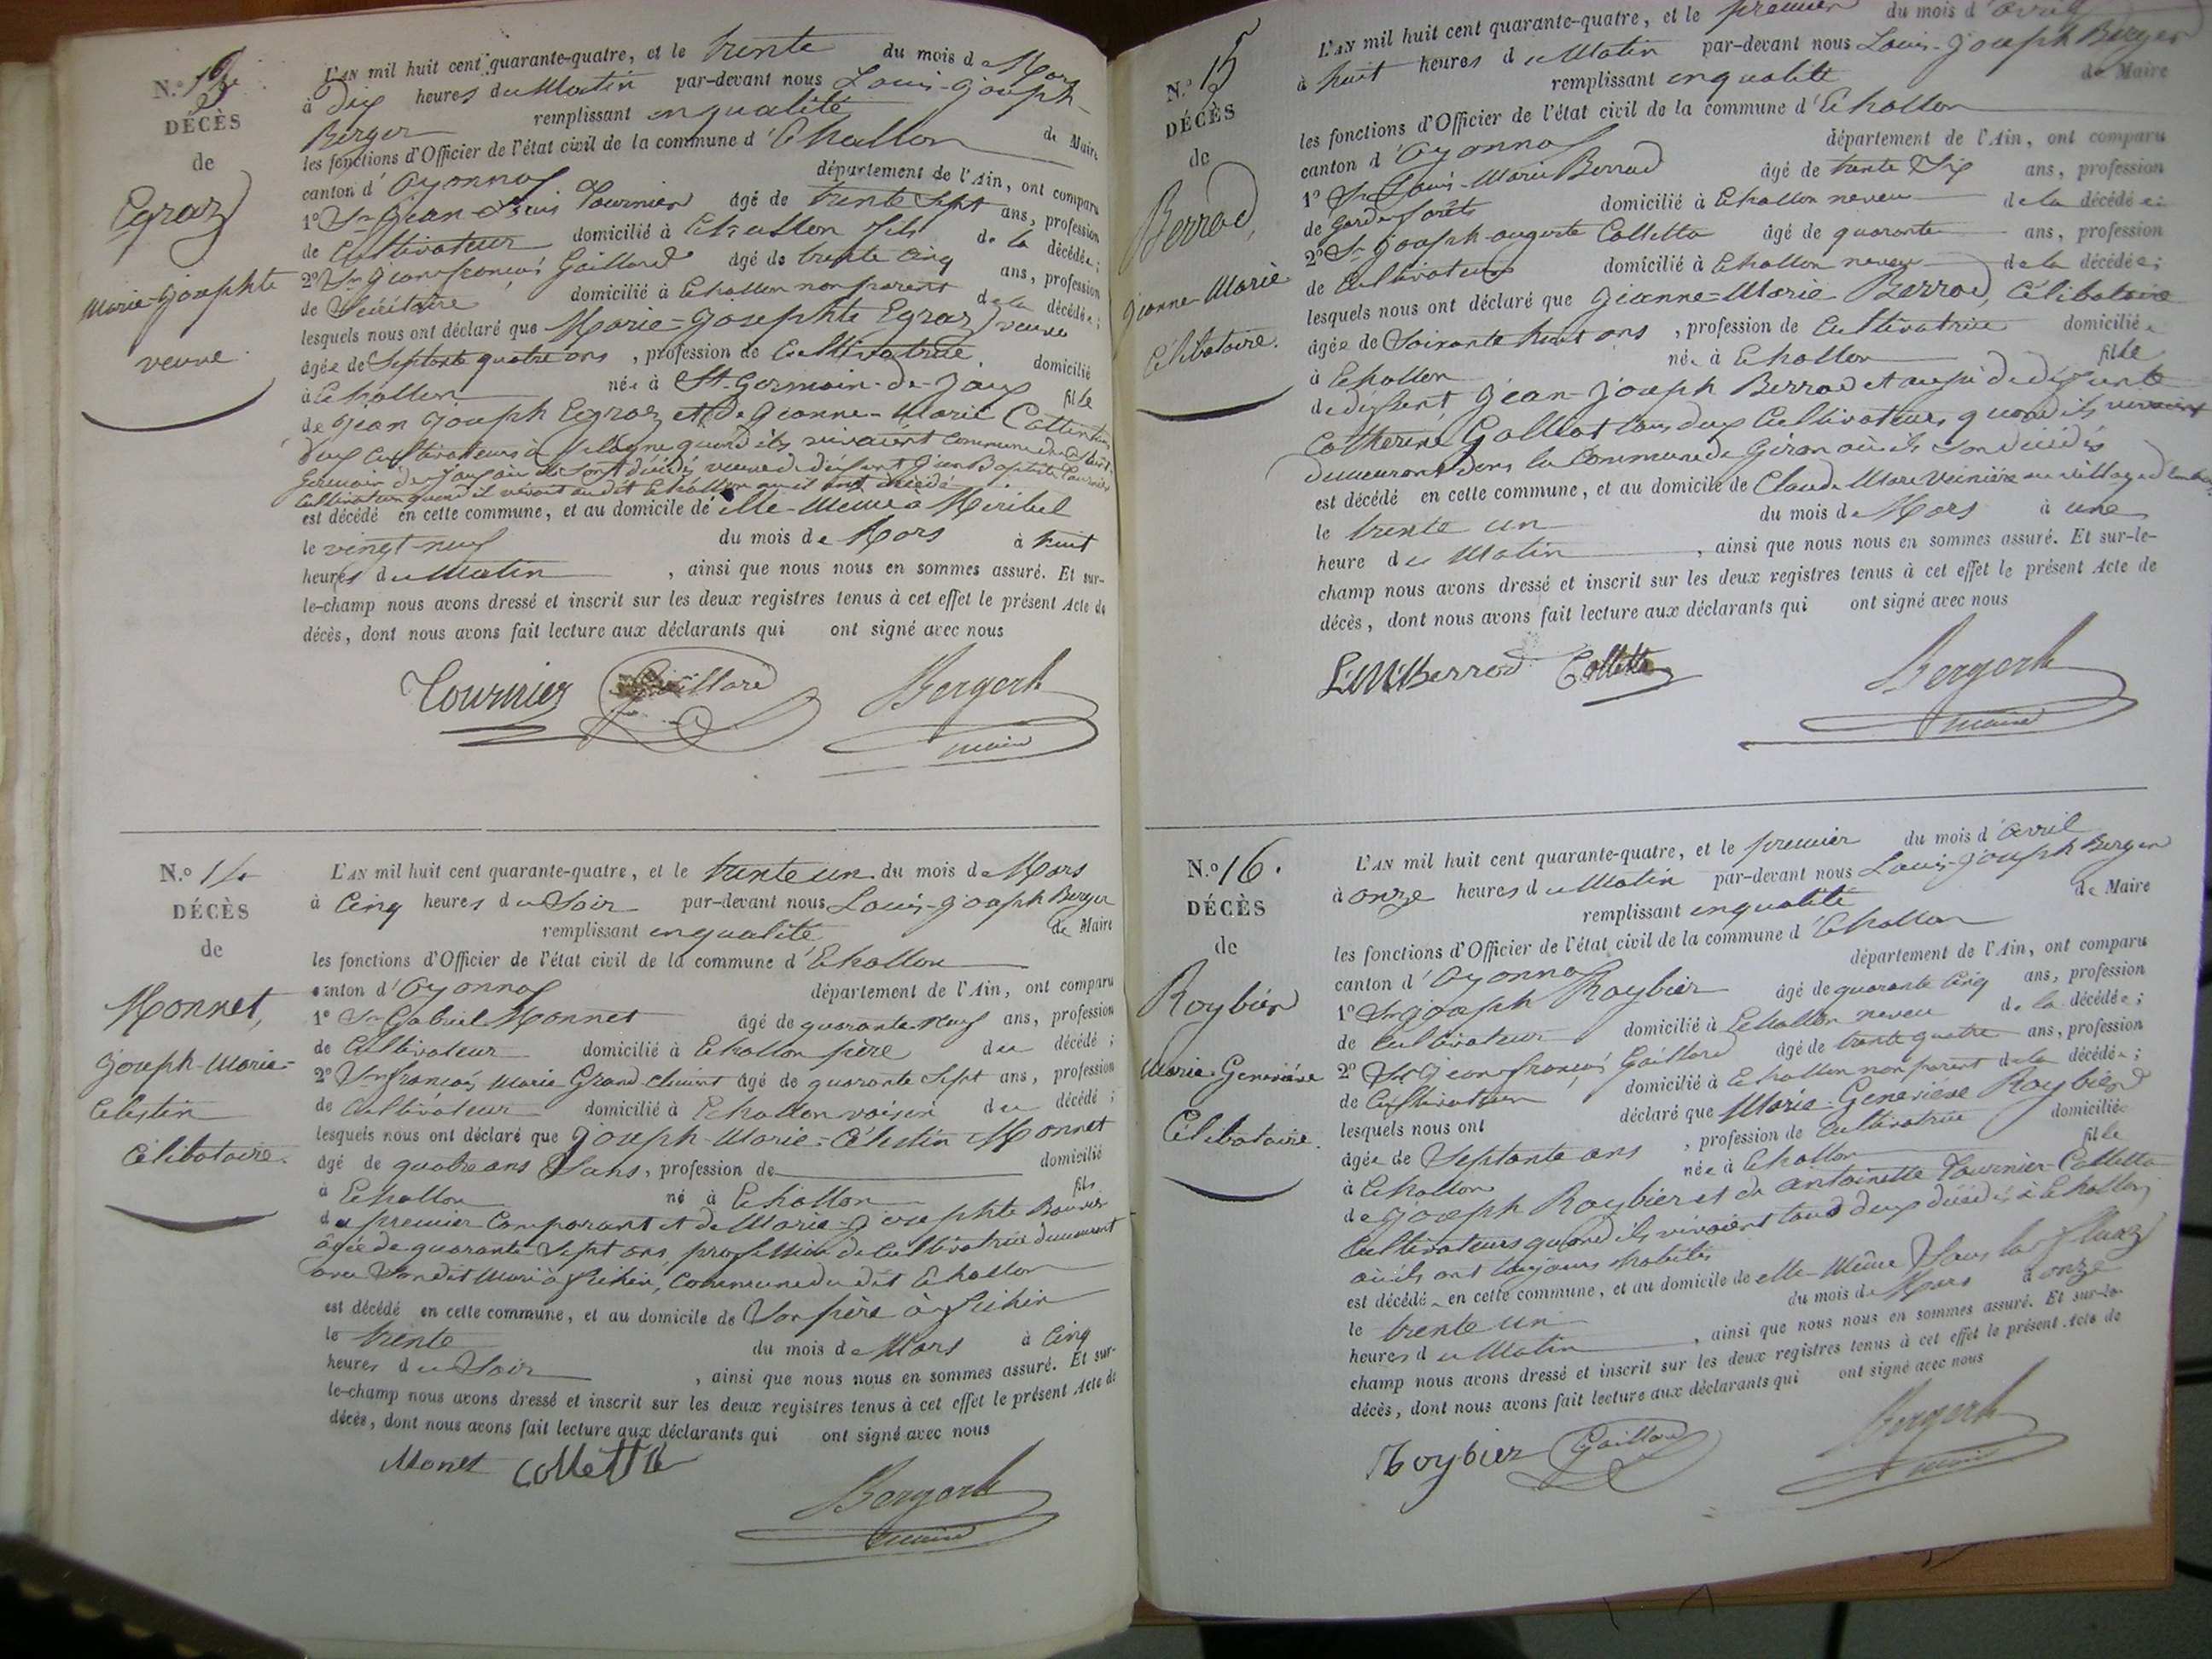 N.° 13
DÉCÈS
de
Egraz
Marie-Josephte
veuve
L'AN mil huit cent quarante-quatre, et le trente du mois de Mars
à Dix heures du Matin par-devant nous Louis-Joseph
Berger remplissant en qualité de Maire
les fonctions d'Officier de l'état civil de la commune d'Echallon
canton d'Oyonnax département de l'Ain, ont comparu
1° Sr Jean-Louis Tournier âgé de trente Sept ans, profession
de Cultivateur domicilié à Echallon fils de la décédée;
2° Sr Jean françois Gaillard âgé de trente Cinq ans, profession
de Secrétaire domicilié à Echallon non parent de la décédée;
lesquels nous ont déclaré que Marie-Josephte Egraz veuve
âgée de Septante quatre ans, profession de Cultivatrice domicilié
à Echallon née à St-Germain-de-Joux fille
de Jean Joseph Egraz et de Jeanne-Marie
deux Cultivateurs à quand ils vivaient Commune de St
Germain de Joux où ils sont décédés veuve de défunt Jean Baptiste Tournier
Cultivateur quand il vivait audit Echallon où il est décédé
est décédé en cette commune, et au domicile de elle-Même à Meribel
le vingt-neuf du mois de Mars à huit
heures du Matin, ainsi que nous nous en sommes assuré. Et sur-
le-champ nous avons dressé et inscrit sur les deux registres tenus à cet effet le présent Acte de
décès, dont nous avons fait lecture aux déclarants qui ont signé avec nous
Tournier Gaillard Berger
maire
N.° 14
DÉCÈS
de
Monnet,
Joseph-Marie-
Celestin
Célibataire.
L'AN mil huit cent quarante-quatre, et le trente un du mois de Mars
à Cinq heures du Soir par-devant nous Louis-Joseph Berger
remplissant en qualité de Maire
les fonctions d'Officier de l'état civil de la commune d'Echallon
canton d'Oyonnax département de l'Ain, ont comparu
1° Sr Gabriel Monnet âgé de quarante neuf ans, profession
de Cultivateur domicilié à Echallon père du décédé;
2° Sr françois Marie Grand Clément âgé de quarante Sept ans, profession
de Cultivateur domicilié à Echallon voisin du décédé;
lesquels nous ont déclaré que Joseph-Marie-Célestin Monnet
âgé de quatre ans Sans, profession de domicilié
à Echallon né à Echallon fils
du premier Comparant et de Marie-Josephte
âgée de quarante Sept ans profession de Cultivatrice demeurant
avec Son dit Mari à, Commune du dit Echallon
est décédé en cette commune, et au domicile de Son père à
le trente du mois de Mars à Cinq
heures du Soir, ainsi que nous nous en sommes assuré. Et sur-
le-champ nous avons dressé et inscrit sur les deux registres tenus à cet effet le présent Acte de
décès, dont nous avons fait lecture aux déclarants qui ont signé avec nous
Monet Collette
Berger
maire
N.° 15
DÉCÈS
de
Berrod,
Jeanne-Marie
Célibataire.
L'AN mil huit cent quarante-quatre, et le premier du mois d'avril
à huit heures du Matin par-devant nous Louis-Joseph Berger
remplissant en qualité de Maire
les fonctions d'Officier de l'état civil de la commune d'Echallon
canton d'Oyonnax département de l'Ain, ont comparu
1° Sr Louis-Marie Berrod âgé de trente Six ans, profession
de Garde forêts domicilié à Echallon neveu de la décédée;
2° Sr Joseph-auguste Colletta âgé de quarante ans, profession
de Cultivateur domicilié à Echallon neveu de la décédée;
lesquels nous ont déclaré que Jeanne-Marie Berrod, Célibataire
âgée de Soixante huit ans, profession de Cultivatrice domiciliée
à Echallon née à Echallon fille
de défunt Jean-Joseph Berrod et aussi de défunte
Catherine tous deux Cultivateurs quand ils vivaient
demeurant dans la Commune de Giron où ils sont décédés
est décédé en cette commune, et au domicile de Claude Marie au village
le trente un du mois de Mars à une
heure du Matin, ainsi que nous nous en sommes assuré. Et sur-le-
champ nous avons dressé et inscrit sur les deux registres tenus à cet effet le présent Acte de
décès, dont nous avons fait lecture aux déclarants qui ont signé avec nous
L M Berrod Colletta Berger
maire
N.° 16.
DÉCÈS
de
Roybier
Marie-Geneviève
Célibataire.
L'AN mil huit cent quarante-quatre, et le premier du mois d'avril
à onze heures du Matin par-devant nous Louis-Joseph Berger
remplissant en qualité de Maire
les fonctions d'Officier de l'état civil de la commune d'Echallon
canton d'Oyonnax département de l'Ain, ont comparu
1° Sr Joseph Roybier âgé de quarante Cinq ans, profession
de Cultivateur domicilié à Echallon neveu de la décédée;
2° Sr Jean françois Gaillard âgé de trente quatre ans, profession
de Cultivateur domicilié à Echallon non parent de la décédée;
lesquels nous ont déclaré que Marie-Geneviève Roybier
âgée de Septante ans, profession de Cultivatrice domiciliée
à Echallon née à Echallon fille
de Joseph Roybier et de antoinette Tournier-Colletta
Cultivateurs quand ils vivaient tous deux décédés à Echallon,
où ils ont toujours habités
est décédé en cette commune, et au domicile de elle-Même Sous
le trente un du mois de Mars à onze
heures du Matin, ainsi que nous nous en sommes assuré. Et sur-le-
champ nous avons dressé et inscrit sur les deux registres tenus à cet effet le présent Acte de
décès, dont nous avons fait lecture aux déclarants qui ont signé avec nous
Roybier Gaillard Berger
maire